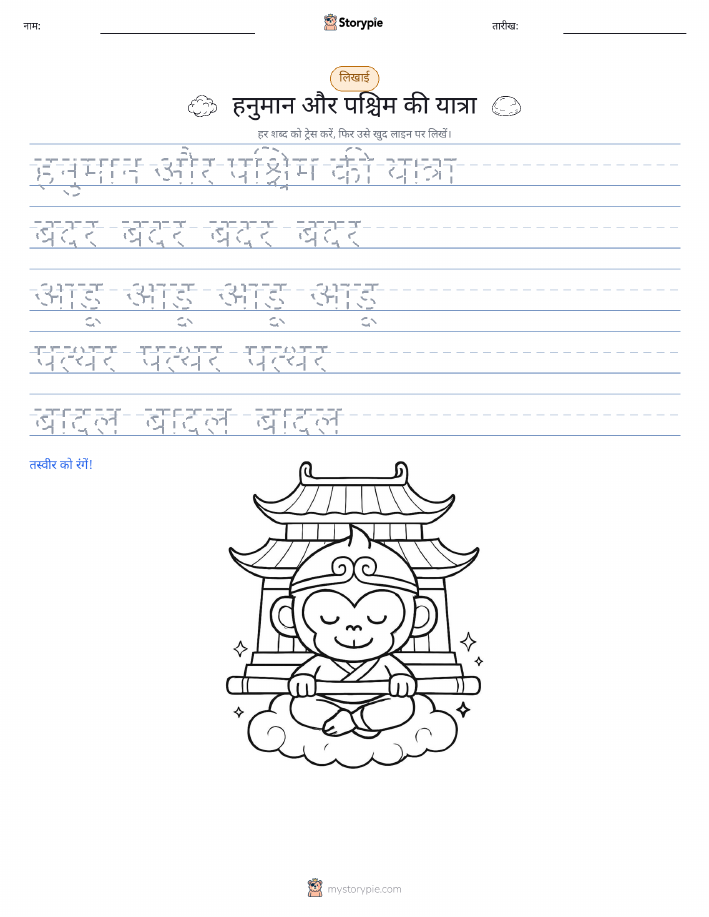 नाम:
Storypie
तारीख:
लिखाई
हनुमान और पश्चिम की यात्रा
हर शब्द को ट्रेस करें, फिर उसे खुद लाइन पर लिखें।
हनुमान और पश्चिम की यात्रा
बदर बदर बदर बदर
आड़ू आड़ू आड़ू आड़ू
पत्थर पत्थर पत्थर
बादल बादल बादल
तस्वीर को रंगें!
mystorypie.com